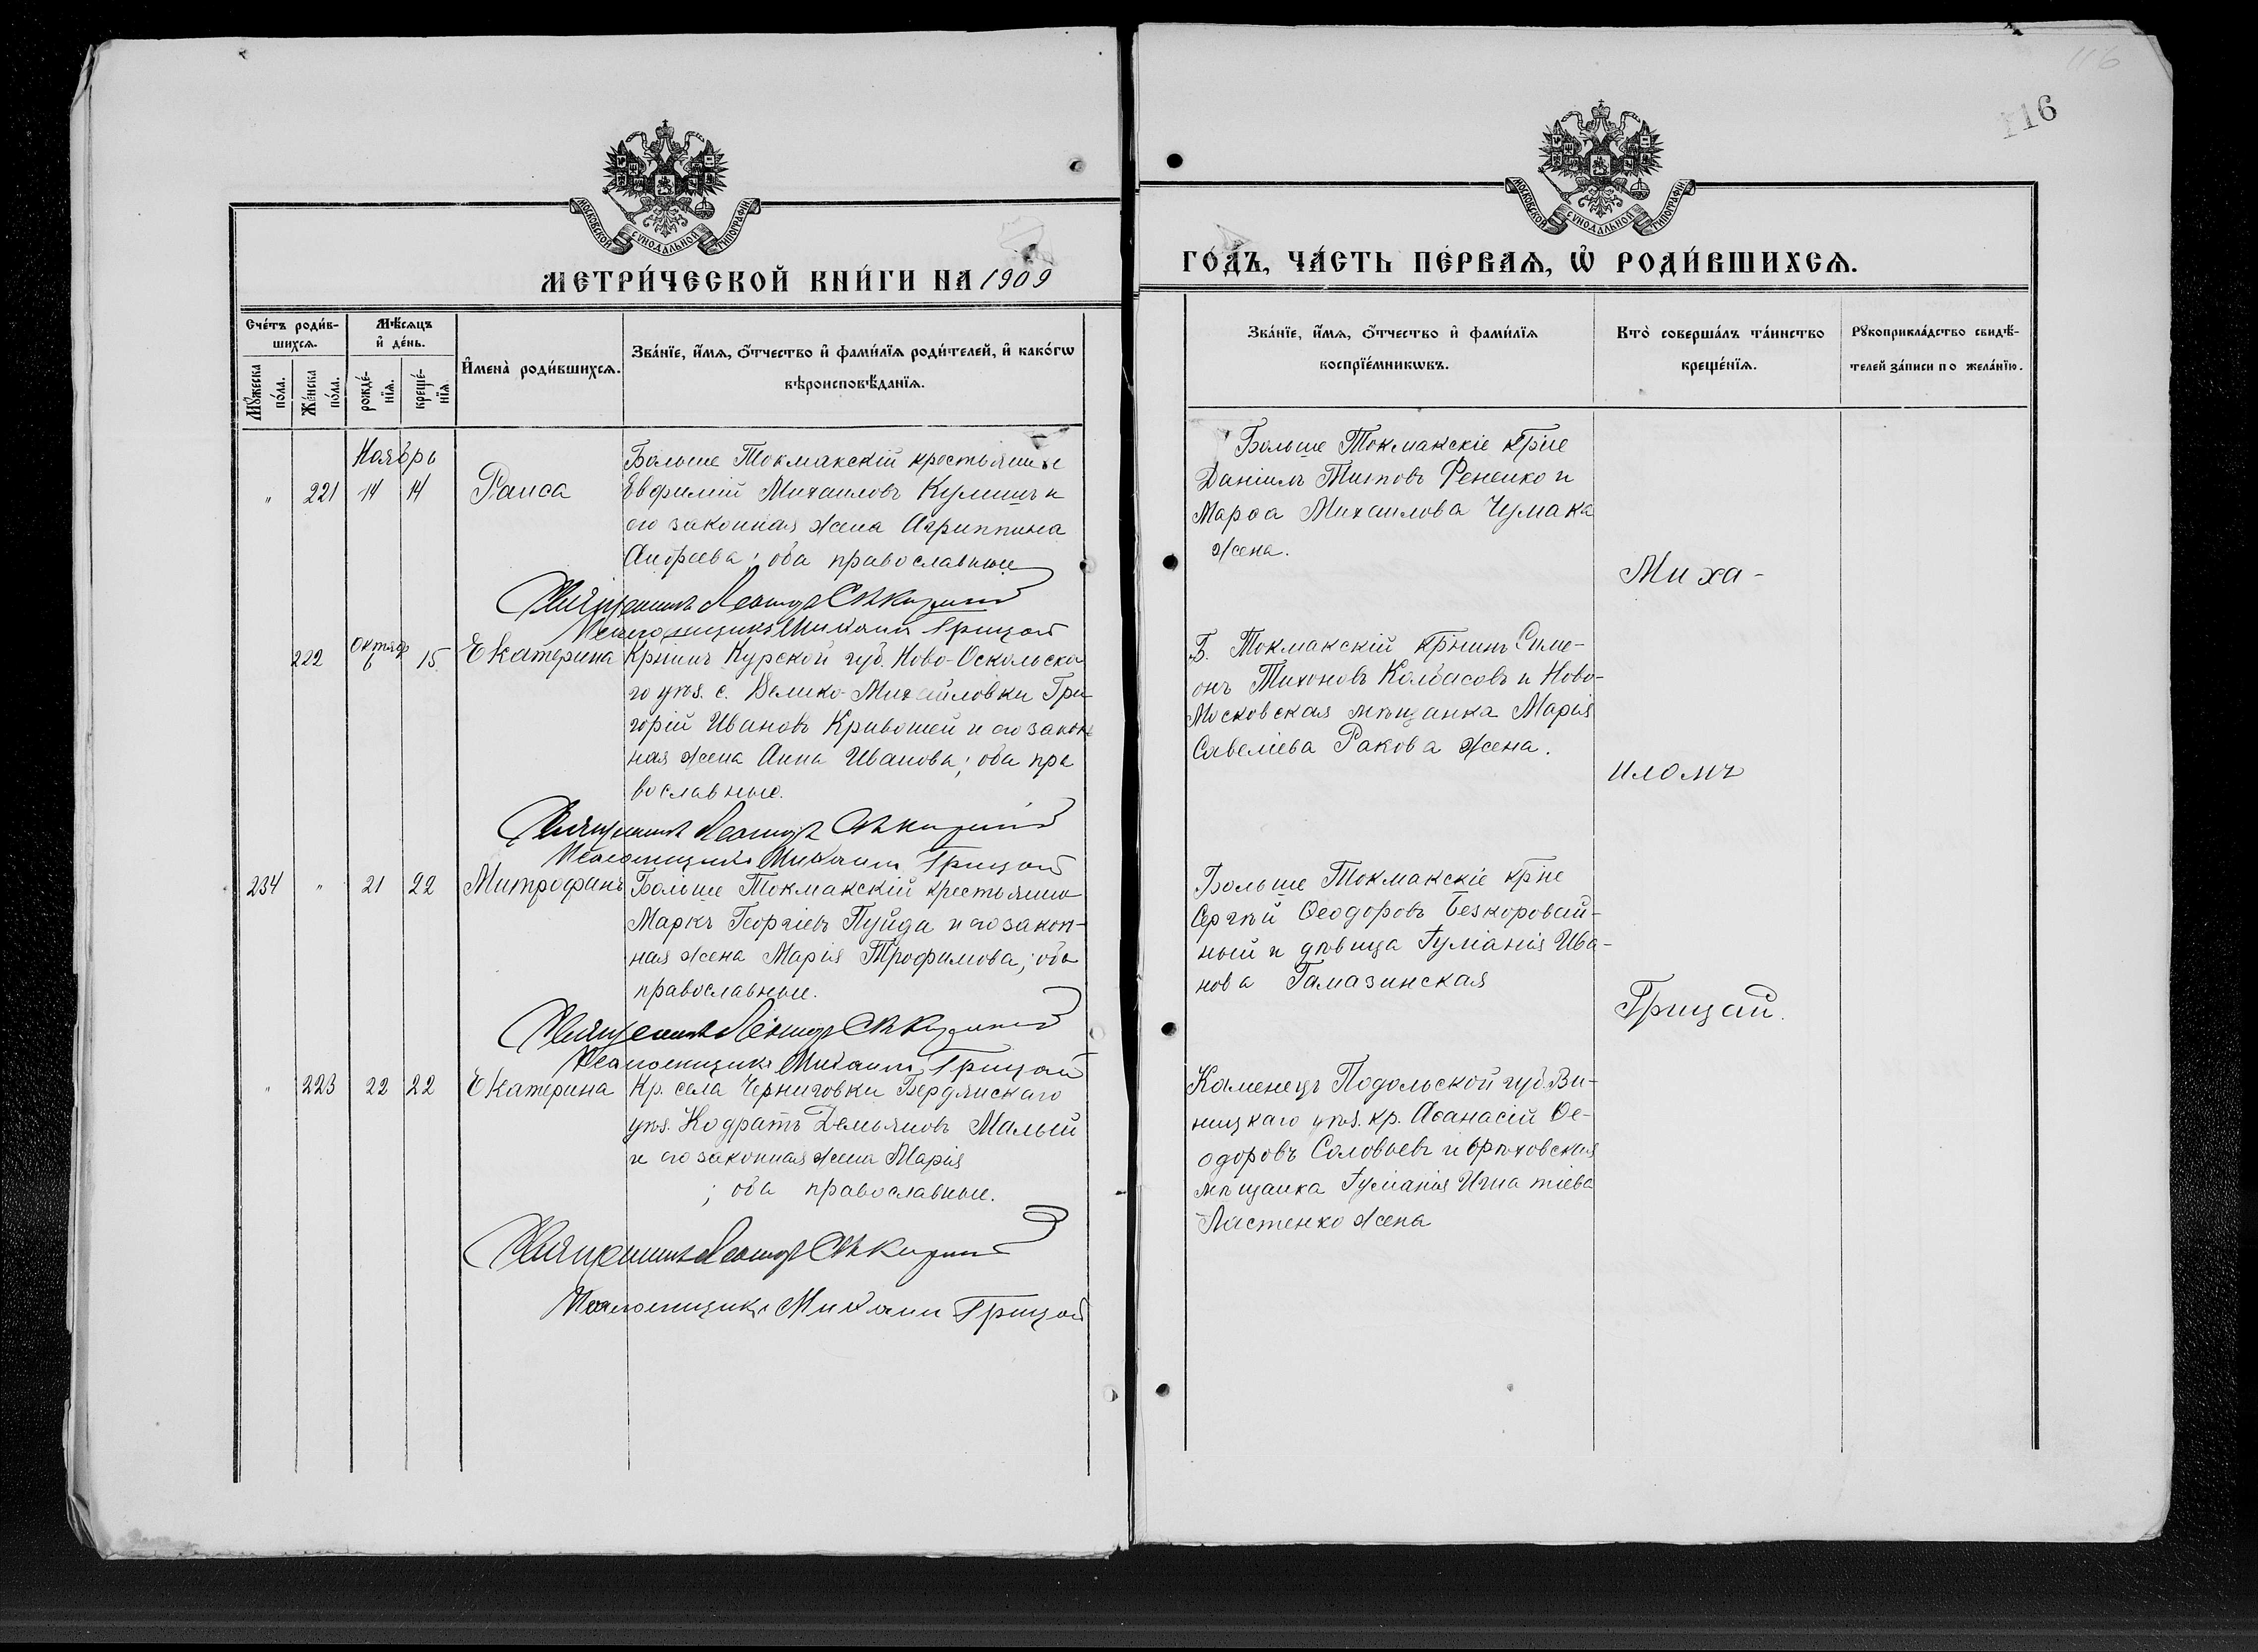 116
116
МОСКОВСКОЙ СѴНОДАЛЬНОЙ ТИПОГРАФІИ
МОСКОВСКОЙ СѴНОДАЛЬНОЙ ТИПОГРАФІИ
МЕТРИ́ЧЕСКОЙ КНИ́ГИ НА 1909
ГО́ДЪ, ЧА́СТЬ ПЕ́РВАѦ, Ѡ҆ РОДИ́ВШИХСѦ.
Сче́тъ роди́в-
шихсѧ.
Мѣ́сѧцъ
и҆ де́нь.
Мꙋ́жеска
по́ла.
Же́нска
по́ла.
рожде́-
нїѧ.
креще́-
нїѧ.
И҆мена̀ роди́вшихсѧ.
Зва́нїе, и҆́мѧ, ѻ҆́тчество и҆ фами́лїѧ роди́телей, и҆ како́гѡ
вѣроисповѣ́данїѧ.
Зва́нїе, и҆́мѧ, ѻ҆́тчество и҆ фами́лїѧ
воспрїе́мникѡвъ.
Кто̀ соверша́лъ та́инство
креще́нїѧ.
Рꙋкоприкла́дство свидѣ́-
телей за́писи по жела́нїю.
Ноябрь
" 221 14 14 Раиса
Больше Токмакскій крестьянинъ
Евфимій Михаиловъ Кулишъ и
его законная жена Агриппина
Андреева; оба православные
Священникъ Леонидъ
Псаломщикъ Михаилъ Грицай
Больше Токмакскіе крне
Даніилъ Титовъ Фененко и
Марѳа Михаилова Чумака
жена.
Миха-
222 Октяб 6 15 Екатерина
Крнинъ Курской губ. Ново-Оскольска
го уѣз. с. Велико-Михайловки Гри
горій Ивановъ Кривошей и его закон
ная жена Анна Иванова; оба пра
вославные.
Священникъ Леонидъ
Псаломщикъ Михаилъ Грицай
Б. Токмакскій крнинъ Симе-
онъ Тихоновъ Колбасовъ и Ново-
Московская мѣщанка Марія
Савеліева Ракова жена.
иломъ
234 " 21 22 Митрофанъ
Больше Токмакскій крестьянинъ
Маркъ Георгіевъ Пуйда и его закон-
ная жена Марія Трофимова; оба
православные.
Священникъ Леонидъ
Псаломщикъ Михаилъ Грицай
Больше Токмакскіе крне
Сергѣй Ѳеодоровъ Безкоровай-
ный и дѣвица Іуліанія Ива-
нова Гамазинская
Грицай.
" 223 22 22 Екатерина
Кр. села Черниговки Бердянскаго
уѣз. Кодратъ Демьяновъ Малый
и его законная жена Марія
; оба православные.
Священникъ Леонидъ
Псаломщикъ Михаилъ Грицай
Каменецъ Подольской губ. Ви-
ницкаго уѣз. кр. Аѳанасій Ѳе-
одоровъ Соловьевъ и орѣховская
мѣщанка Іуліанія Игнатіева
Ластенко жена